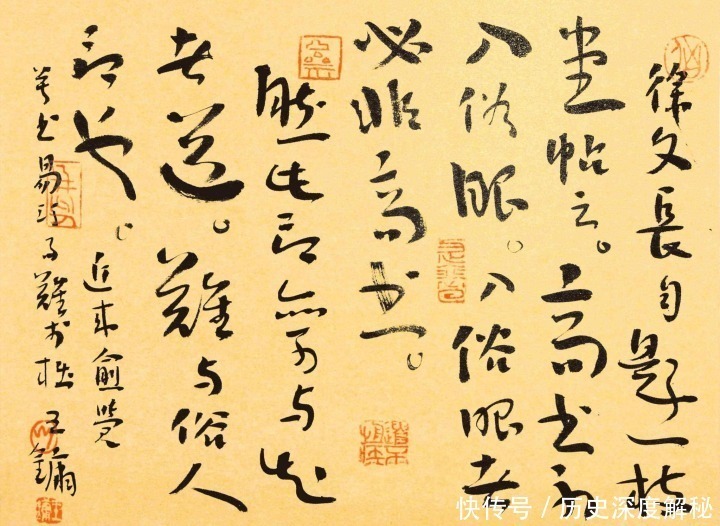 徐文長自題一枝
堂帖云。高书不
入俗眼。入俗眼者
必非高书。
然此言亦可与知
者道。難与俗人
言也。近来愈覺
草书易巧而難於拙 王鏞
快传号 / 历史深度解秘